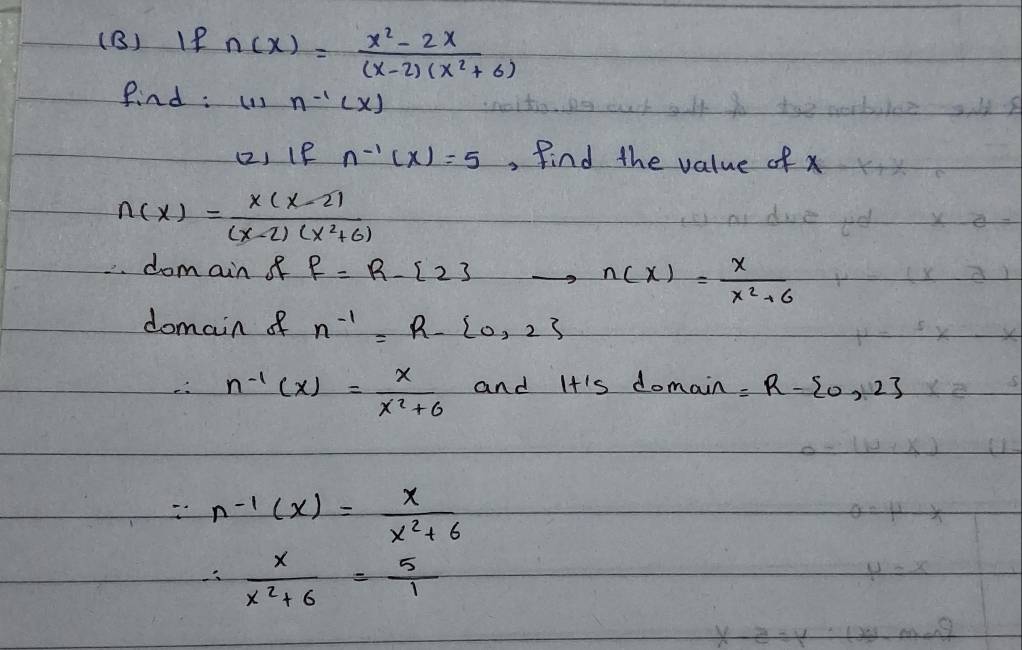 (B) If n(x) = x² - 2x / (x-2)(x²+6)
find: (1) n⁻¹(x)
(2) If n⁻¹(x) = 5, find the value of x
n(x) = x(x-2) / (x-2)(x²+6)
∴ domain of f = R - {2} → n(x) = x / x²+6
domain of n⁻¹ = R - {0, 2}
∴ n⁻¹(x) = x / x²+6 and It's domain = R - {0, 2}
∵ n⁻¹(x) = x / x²+6
∴ x / x²+6 = 5 / 1